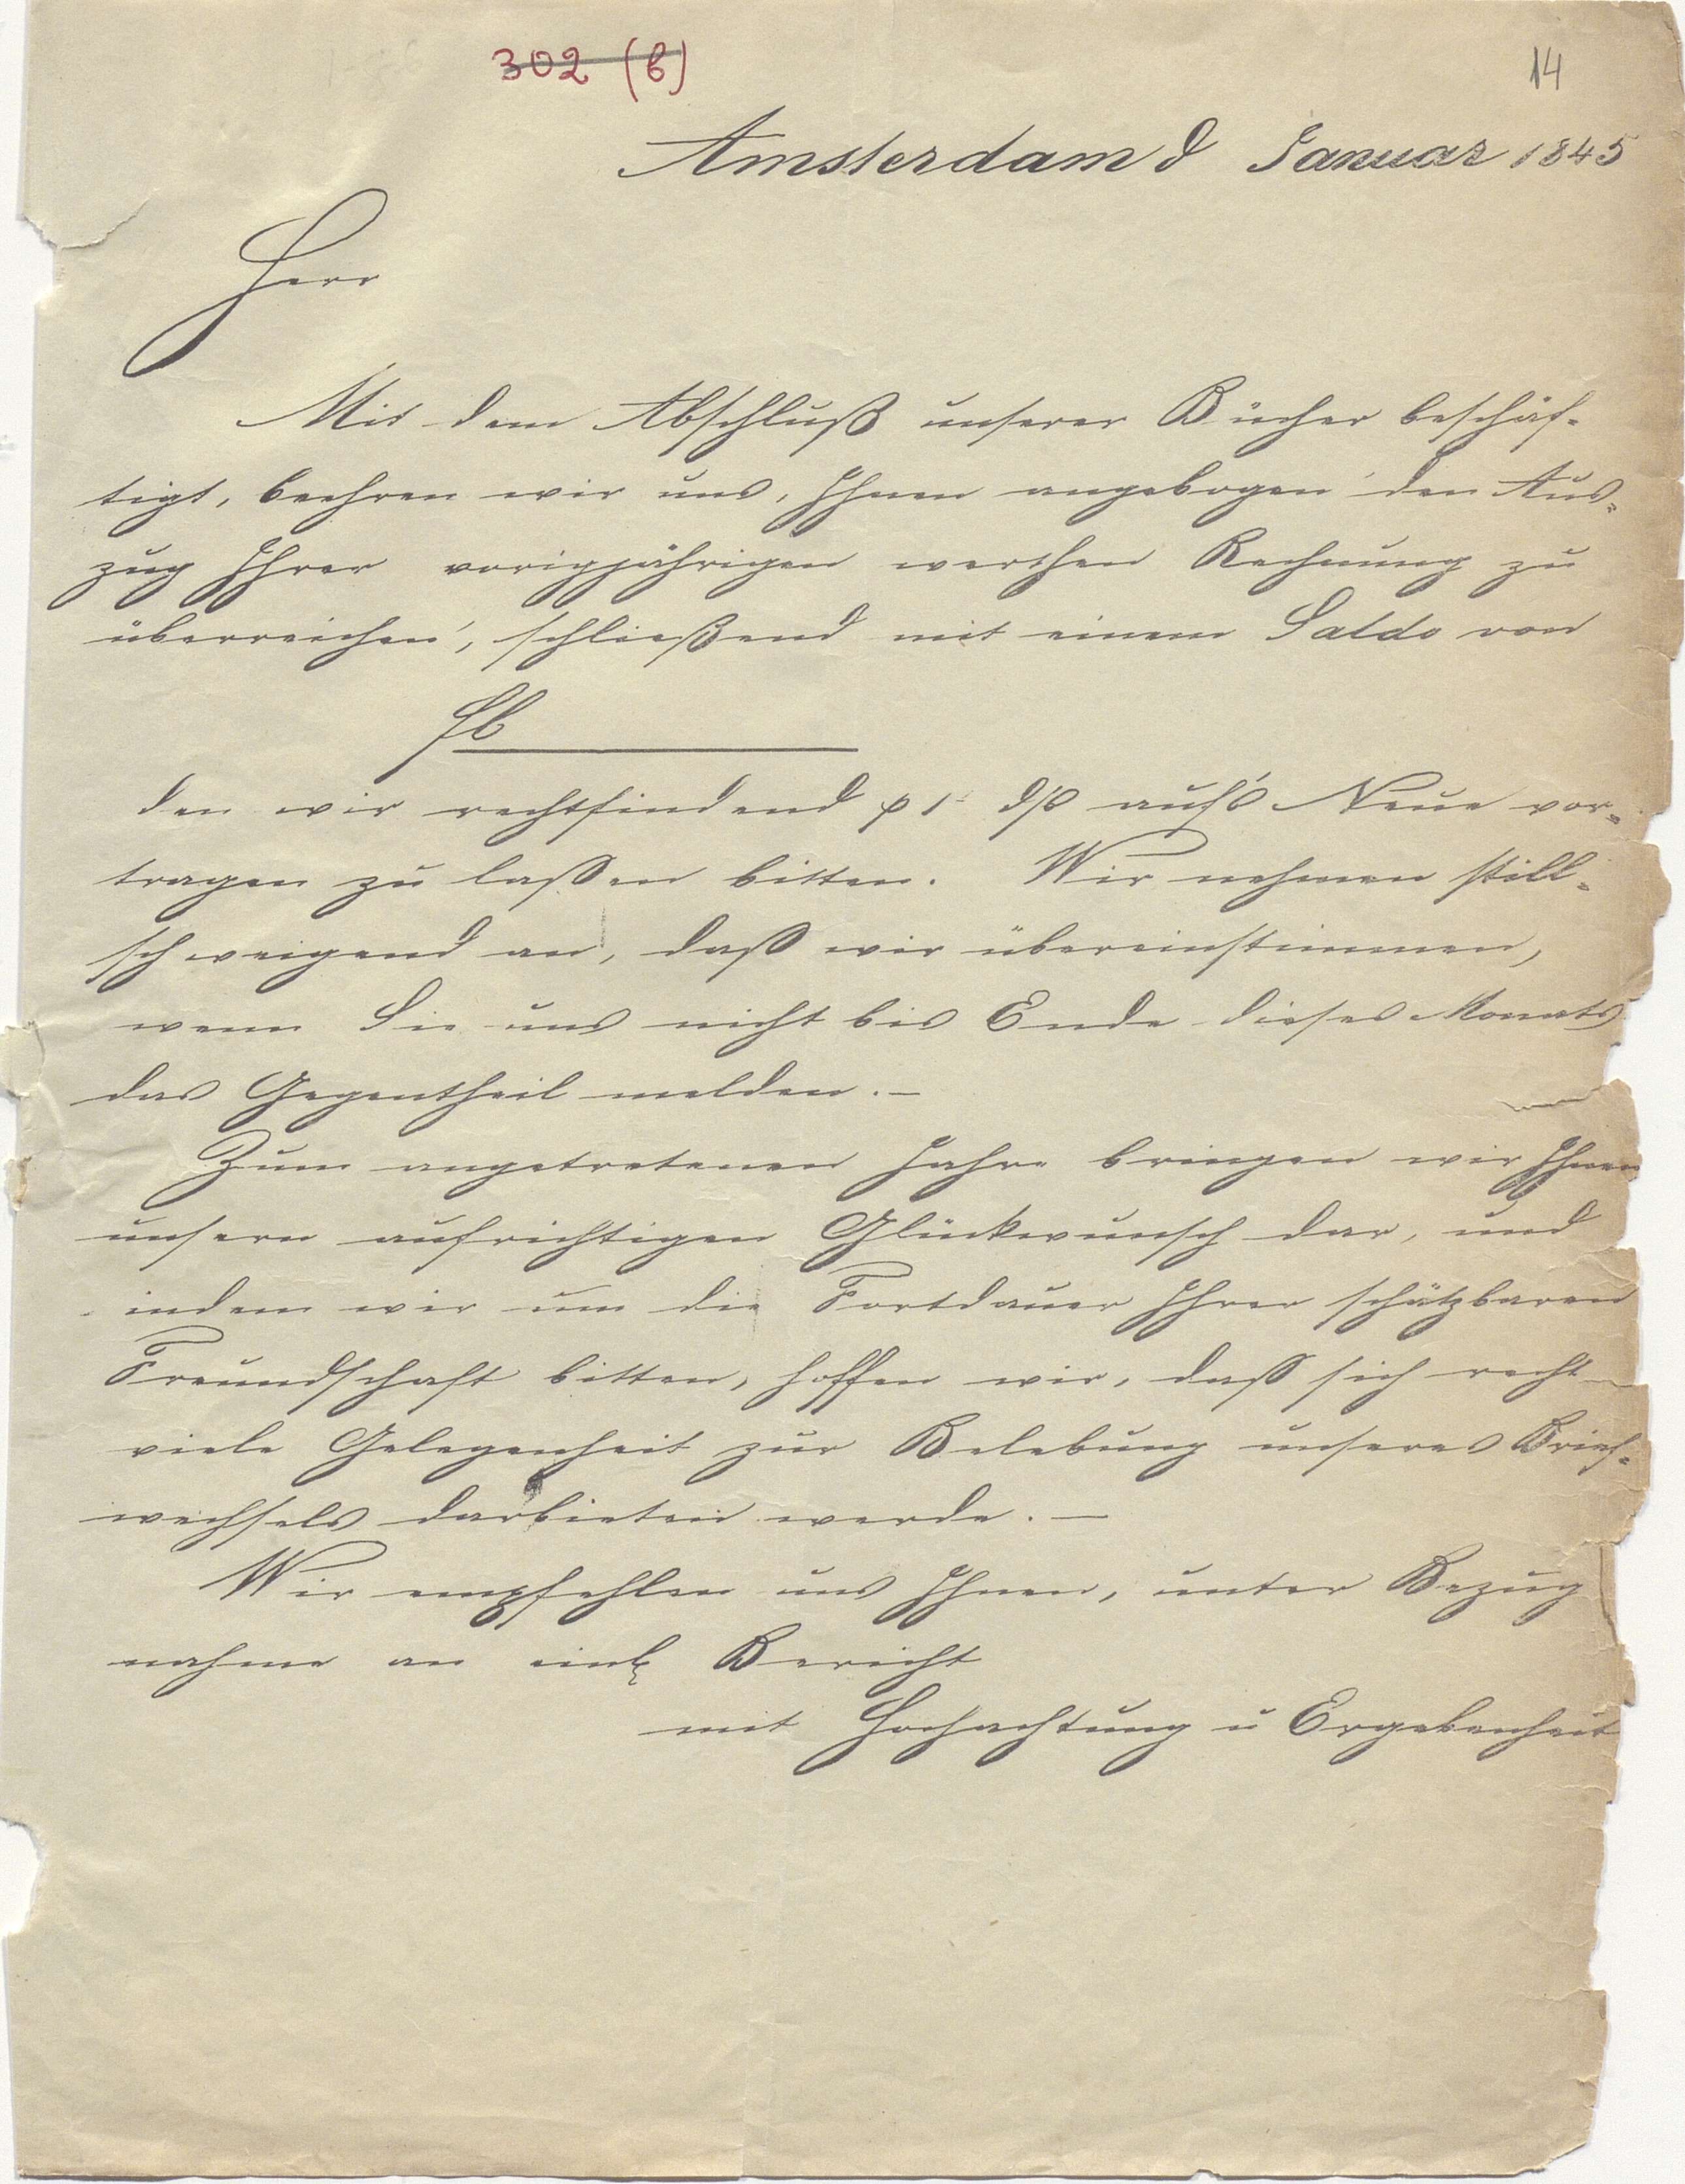 302 (b)
14
Amsterdam d Januar 1845
Herr
Mit dem Abschluß unserer Bücher beschäf-
tigt, beehren wir uns, Ihnen angebogen den Aus-
zug Ihrer vorigjährigen werthen Rechnung zu
überreichen, schließend mit einem Saldo von
den wir rechtfindend p 1 aufs Neue vor-
tragen zu lassen bitten. Wir nehmen still-
schweigend an, daß wir übereinstimmen,
wenn Sie uns nicht bis Ende dieses Monats
das Gegentheil melden. —
Zum angetretenen Jahre bringen wir Ihnen
unsern aufrichtigen Glückwunsch dar, und
indem wir um die Fortdauer Ihrer schätzbaren
Freundschaft bitten, hoffen wir, dass sich recht
viele Gelegenheit zur Belebung unseres Brief-
wechsels darbieten werde. —
Wir empfehlen uns Ihnen, unter Bezug
nahme an Bericht
mit Hochachtung u Ergebenheit